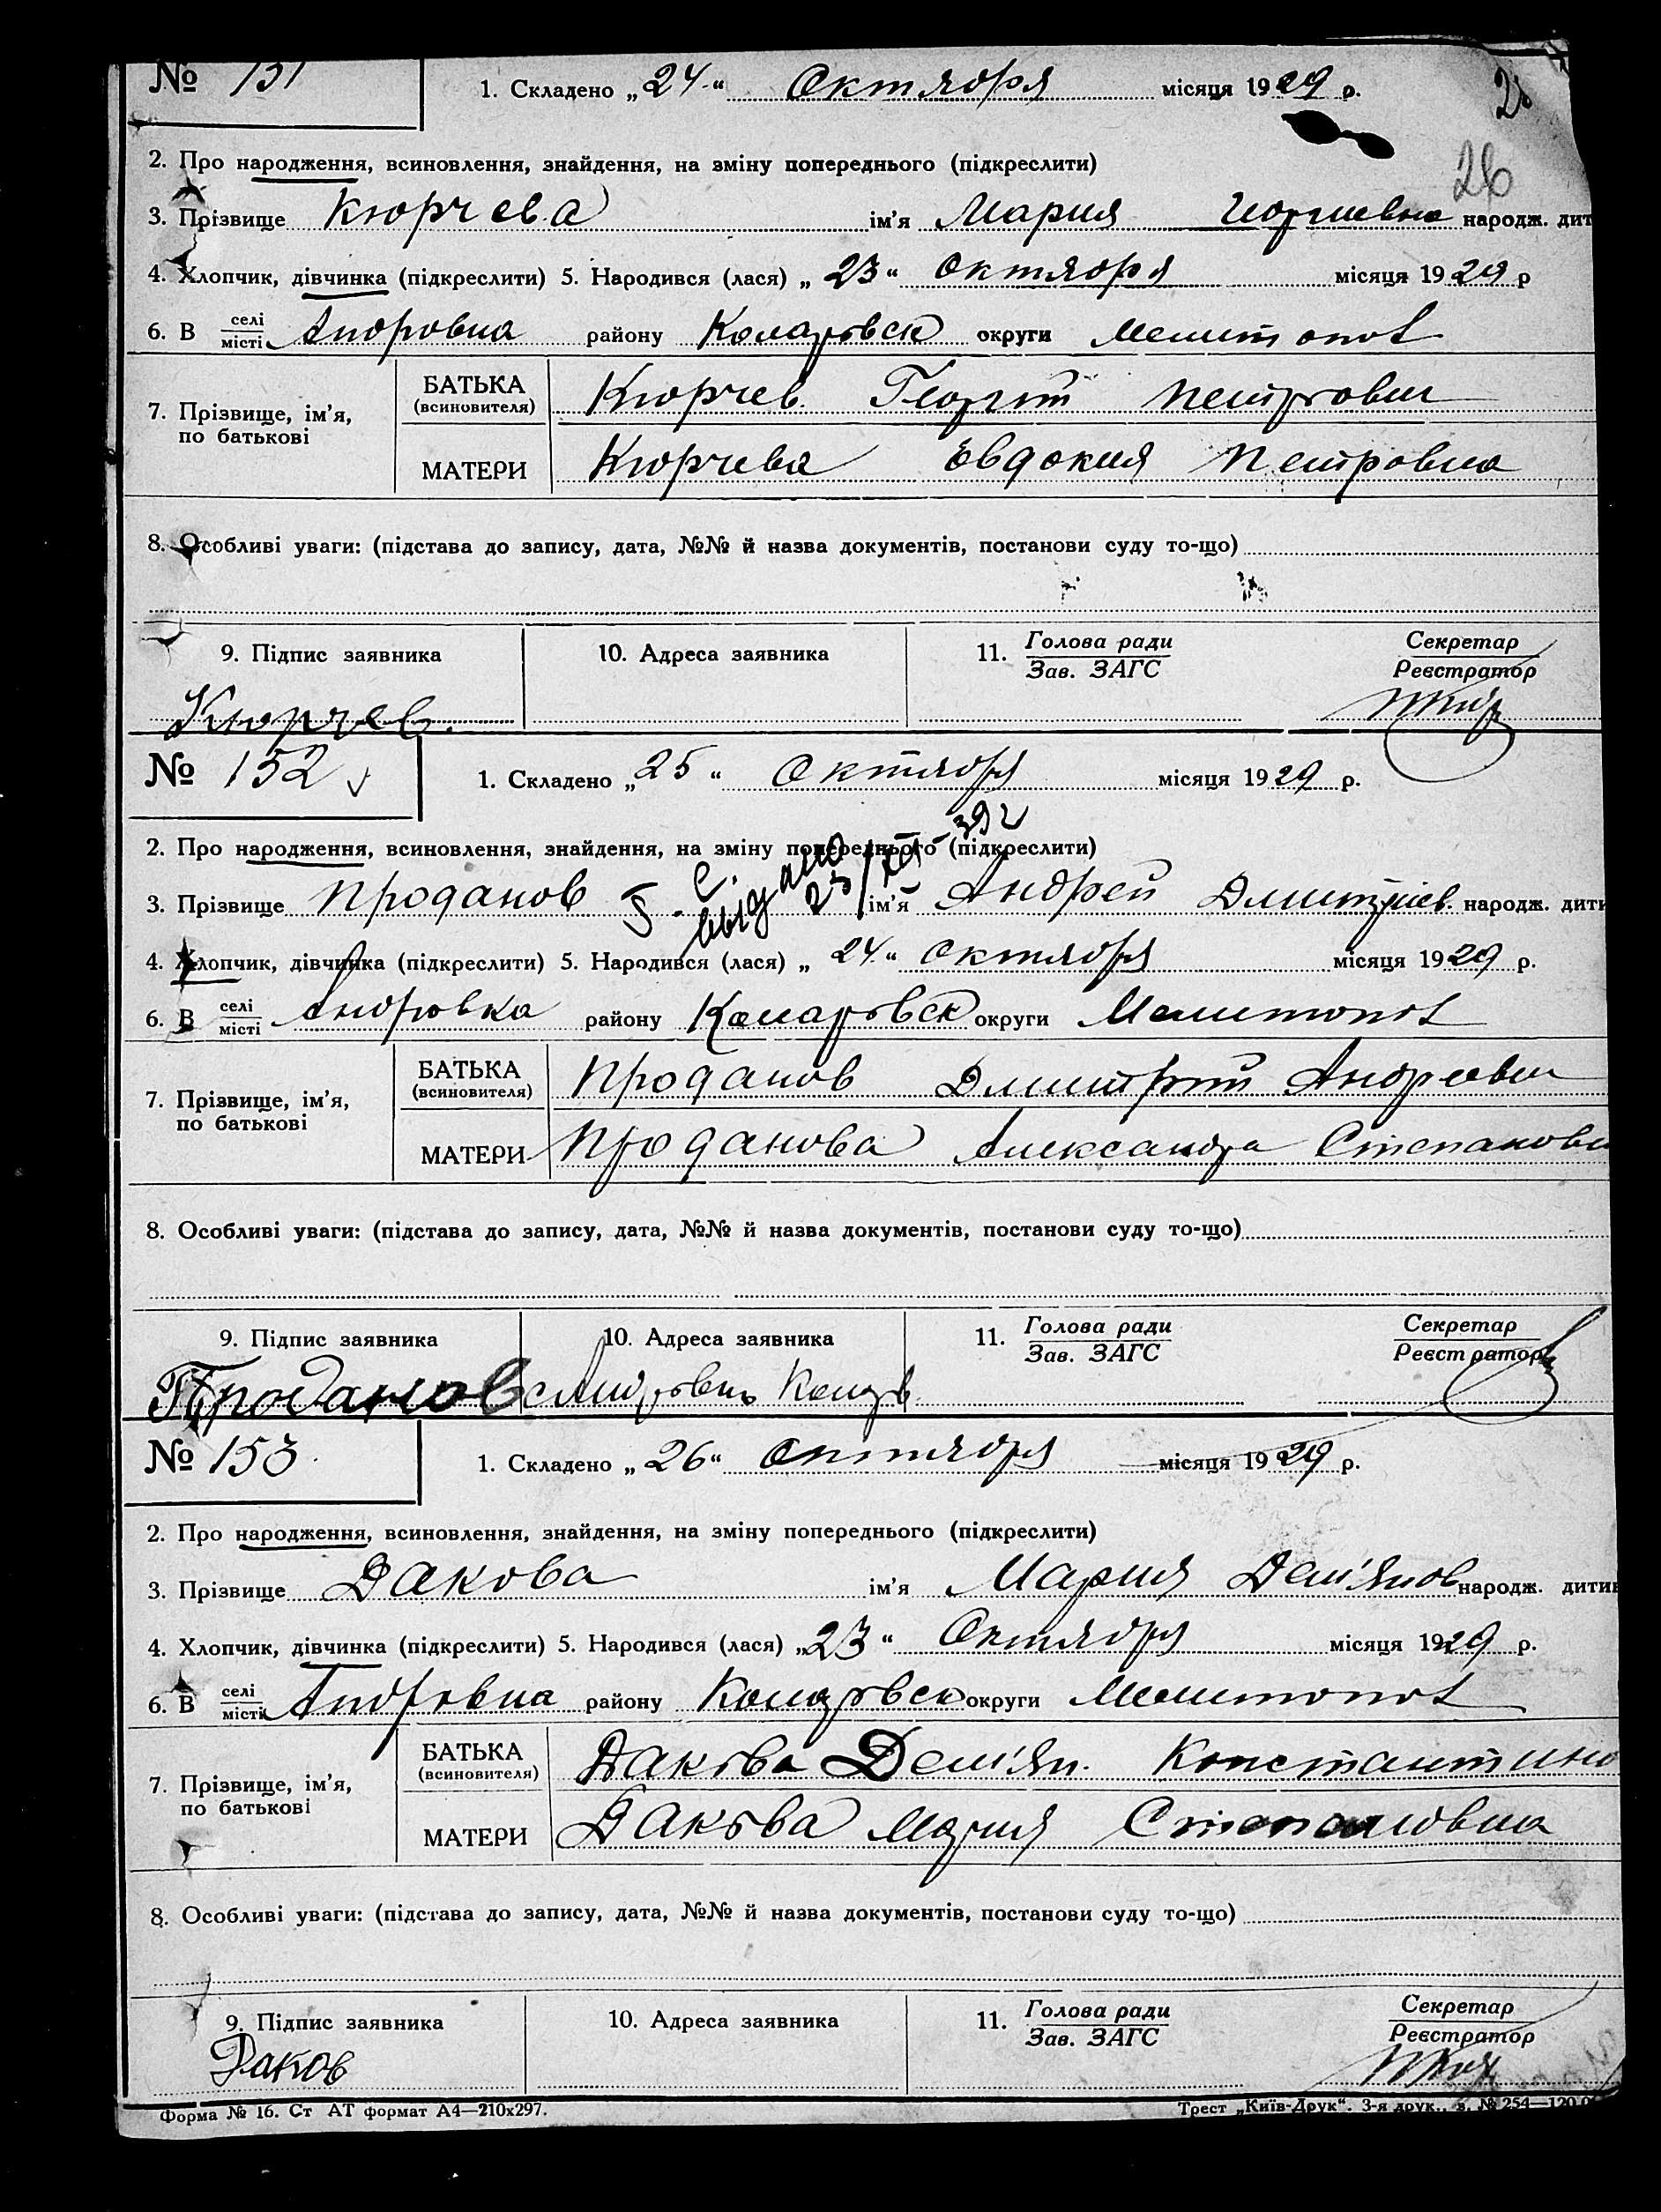 № 151 1. Складено „24“ Октября місяця 1929 р.
26
2. Про народження, всиновлення, знайдення, на зміну попереднього (підкреслити)
3. Прізвище Кюрчева ім’я Мария Георгиевна народж. дит
4. Хлопчик, дівчинка (підкреслити) 5. Народився (лася) „23“ Октября місяця 1929 р
6. В селі місті Андровка району Коларовск округи Мелитопол
7. Прізвище, ім’я, по батькові
БАТЬКА (всиновителя) Кюрчев Георгий Петрович
МАТЕРИ Кюрчева Евдокия Петровна
8. Особливі уваги: (підстава до запису, дата, №№ й назва документів, постанови суду то-що)
9. Підпис заявника 10. Адреса заявника 11. Голова ради Зав. ЗАГС Секретар Реєстратор
Кюрчев.
№ 152 1. Складено „25“ Октября місяця 1929 р.
2. Про народження, всиновлення, знайдення, на зміну попереднього (підкреслити)
3. Прізвище Проданов ім’я Андрей Дмитриев. народж. дити
выдано
4. Хлопчик, дівчинка (підкреслити) 5. Народився (лася) „24“ Октября місяця 1929 р.
6. В селі місті Андровка району Коларовск округи Мелитопол
7. Прізвище, ім’я, по батькові
БАТЬКА (всиновителя) Проданов Дмитрий Андреевич
МАТЕРИ Проданова Александра Степановн
8. Особливі уваги: (підстава до запису, дата, №№ й назва документів, постанови суду то-що)
9. Підпис заявника 10. Адреса заявника 11. Голова ради Зав. ЗАГС Секретар Реєстратор
Проданов
№ 153 1. Складено „26“ Октября місяця 1929 р.
2. Про народження, всиновлення, знайдення, на зміну попереднього (підкреслити)
3. Прізвище Дакова ім’я Мария Дем'янов народж. дитин
4. Хлопчик, дівчинка (підкреслити) 5. Народився (лася) „23“ Октября місяця 1929 р.
6. В селі місті Андровка району Коларовск округи Мелитопол
7. Прізвище, ім’я, по батькові
БАТЬКА (всиновителя) Дакова Дем'ян. Константино
МАТЕРИ Дакова Мария Степановна
8. Особливі уваги: (підстава до запису, дата, №№ й назва документів, постанови суду то-що)
9. Підпис заявника 10. Адреса заявника 11. Голова ради Зав. ЗАГС Секретар Реєстратор
Даков
Форма № 16. Ст АТ формат А4—210х297. Трест „Київ-Друк“. 3-я друк., з. № 254—120.0